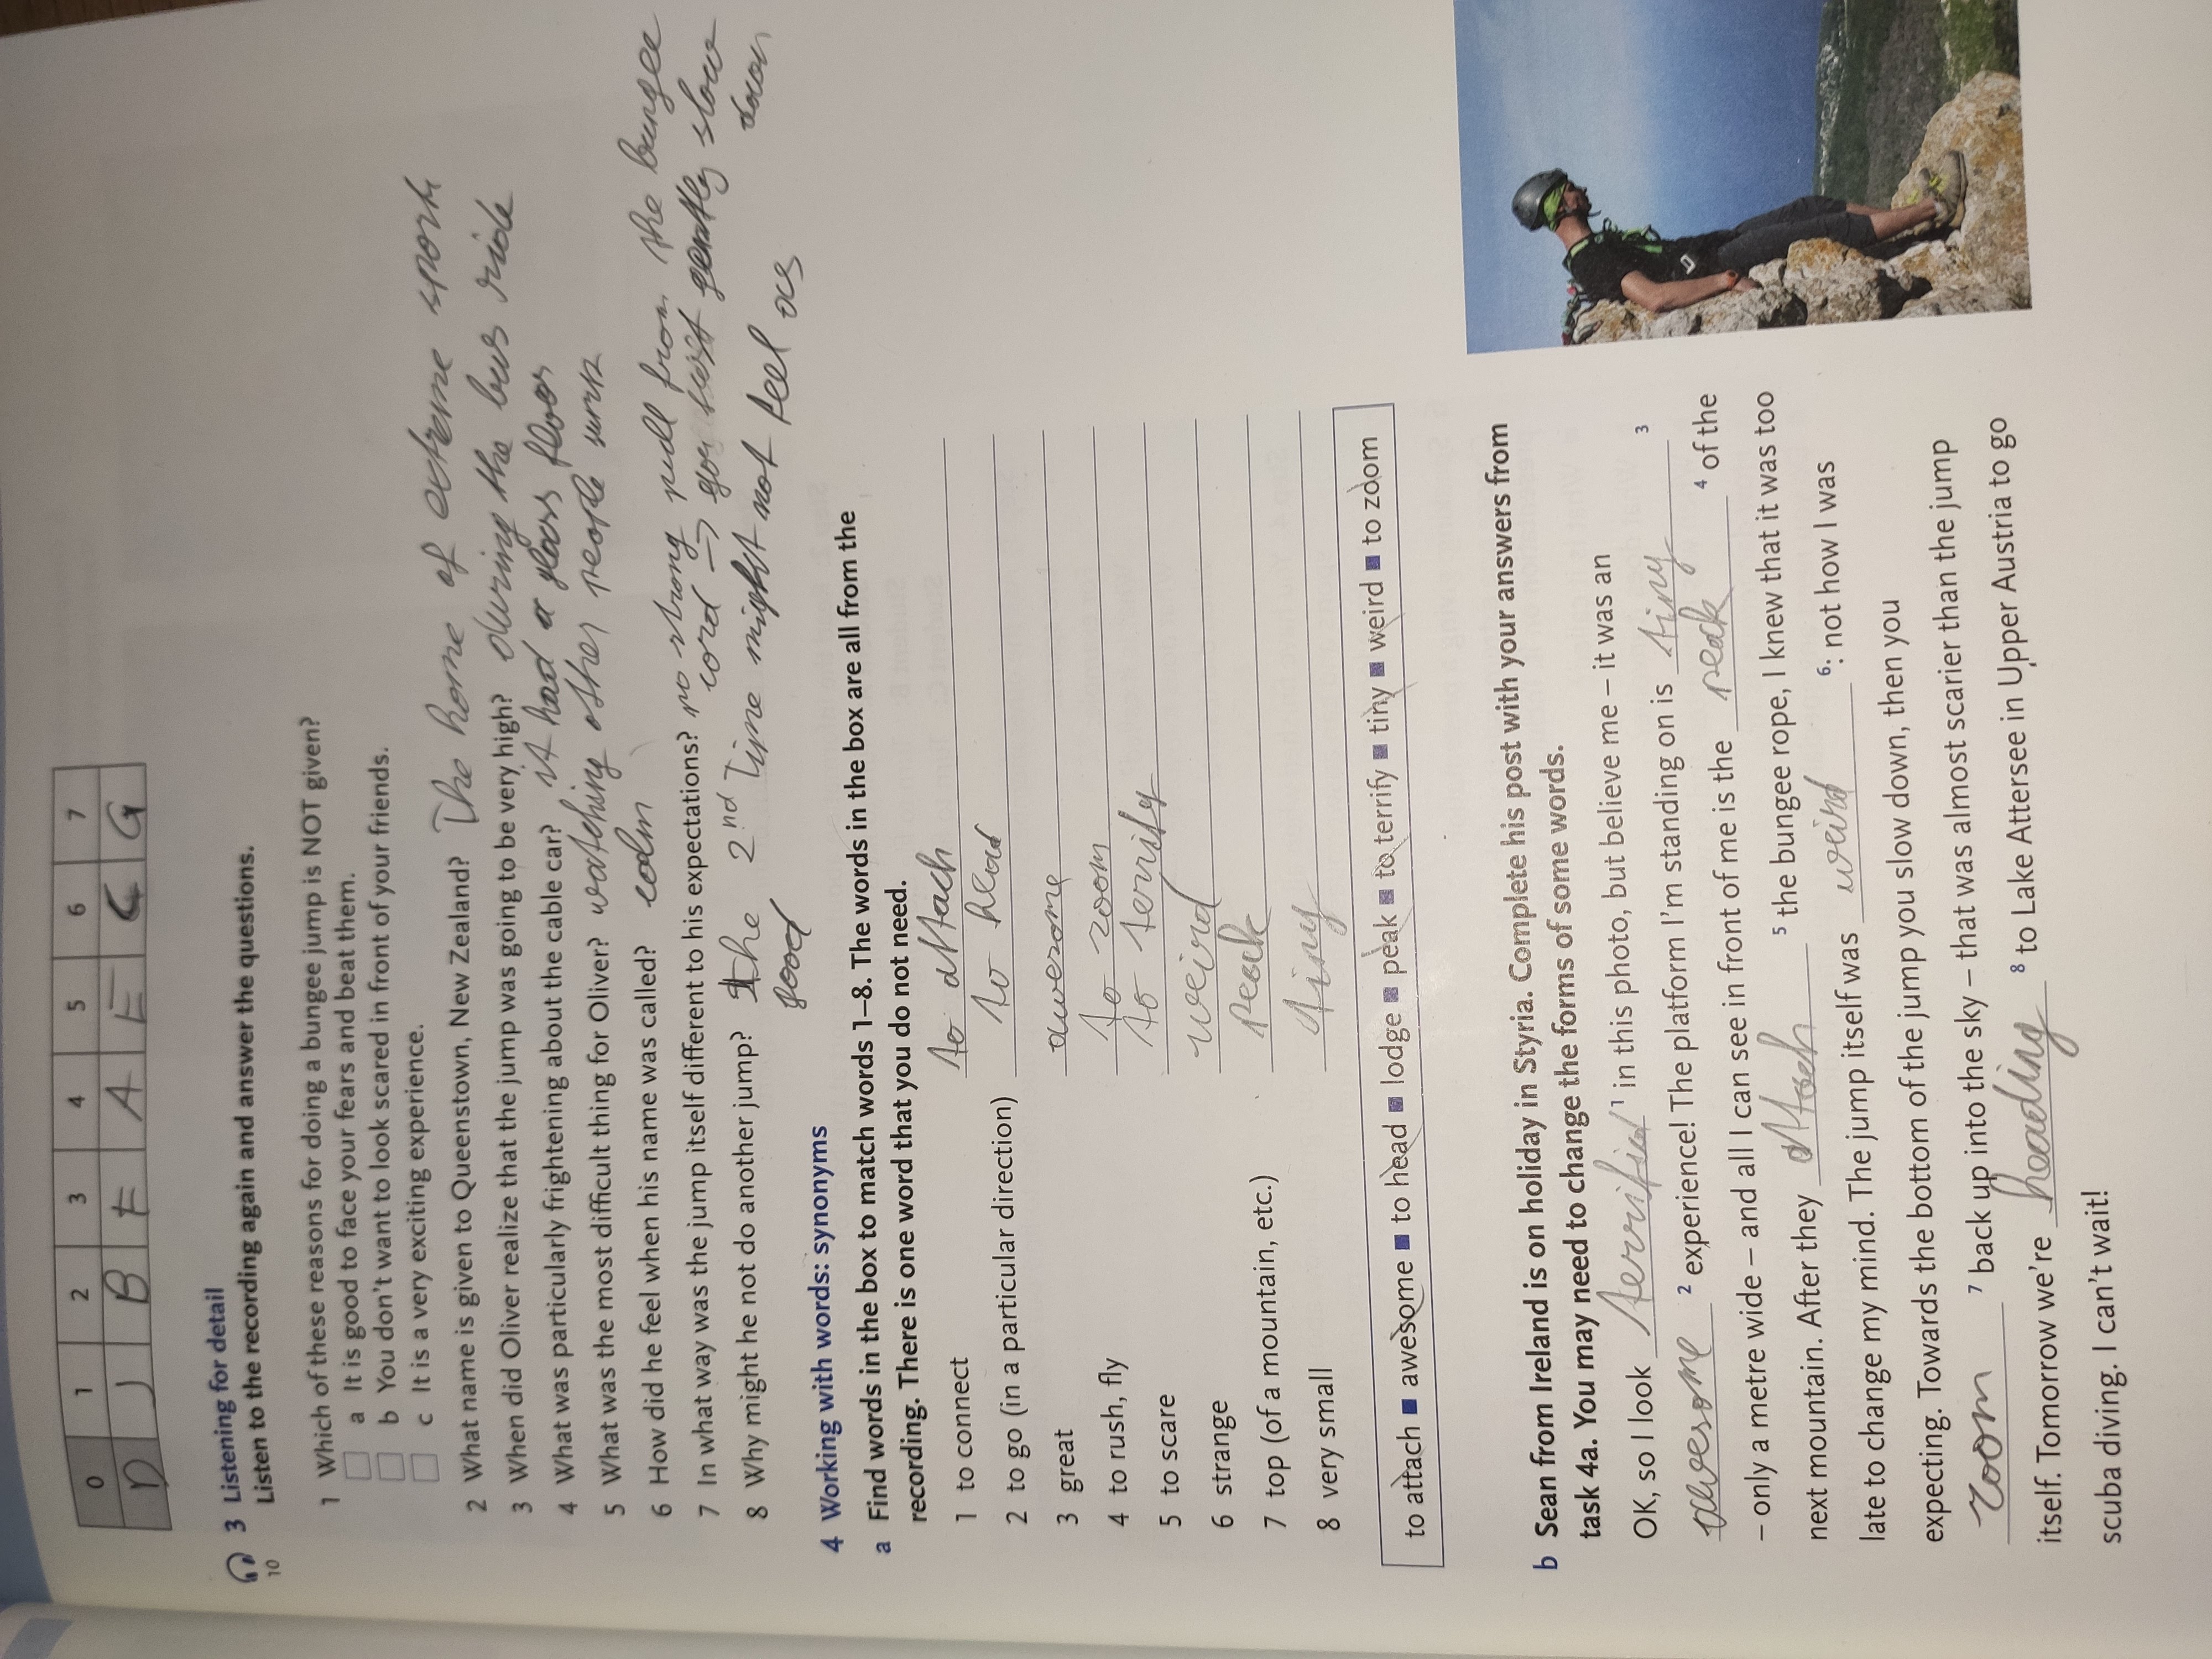 0 1 2 3 4 5 6 7
D J B F A E C G
3 Listening for detail
10
Listen to the recording again and answer the questions.
1 Which of these reasons for doing a bungee jump is NOT given?
a It is good to face your fears and beat them.
b You don't want to look scared in front of your friends.
c It is a very exciting experience.
2 What name is given to Queenstown, New Zealand? The home of extreme sports
3 When did Oliver realize that the jump was going to be very high? during the bus ride
4 What was particularly frightening about the cable car? it had a glass floor
5 What was the most difficult thing for Oliver? watching other people
6 How did he feel when his name was called? calm
7 In what way was the jump itself different to his expectations? no strong pull from the bungee
cord → you just gently slow
down
8 Why might he not do another jump? the 2nd Time might not feel as
good
4 Working with words: synonyms
a Find words in the box to match words 1–8. The words in the box are all from the
recording. There is one word that you do not need.
1 to connect to attach
2 to go (in a particular direction) to head
3 great awesome
4 to rush, fly to zoom
5 to scare to terrify
6 strange weird
7 top (of a mountain, etc.) peak
8 very small tiny
to attach ■ awesome ■ to head ■ lodge ■ peak ■ to terrify ■ tiny ■ weird ■ to zoom
b Sean from Ireland is on holiday in Styria. Complete his post with your answers from
task 4a. You may need to change the forms of some words.
OK, so I look terrified 1 in this photo, but believe me – it was an
awesome 2 experience! The platform I'm standing on is tiny 3
– only a metre wide – and all I can see in front of me is the peak 4 of the
next mountain. After they attach 5 the bungee rope, I knew that it was too
late to change my mind. The jump itself was weird 6: not how I was
expecting. Towards the bottom of the jump you slow down, then you
zoom 7 back up into the sky – that was almost scarier than the jump
itself. Tomorrow we're heading 8 to Lake Attersee in Upper Austria to go
scuba diving. I can't wait!